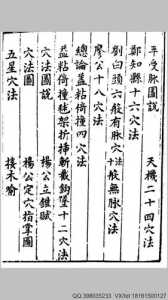 平受脈圖說 天機二十四穴法
鄭知縣十六穴法
劉白頭六般有脈穴法 十般無脈穴法
廖公十八穴法
總論蓋粘倚撞四穴法
蓋粘倚撞毬架折挿斬截鈎墜十二穴法
穴法圖說 楊公立錐賦
穴法圖 楊公定穴指掌圖
五星穴法 接木喻
QQ 396035233 VX/tel 18181500127